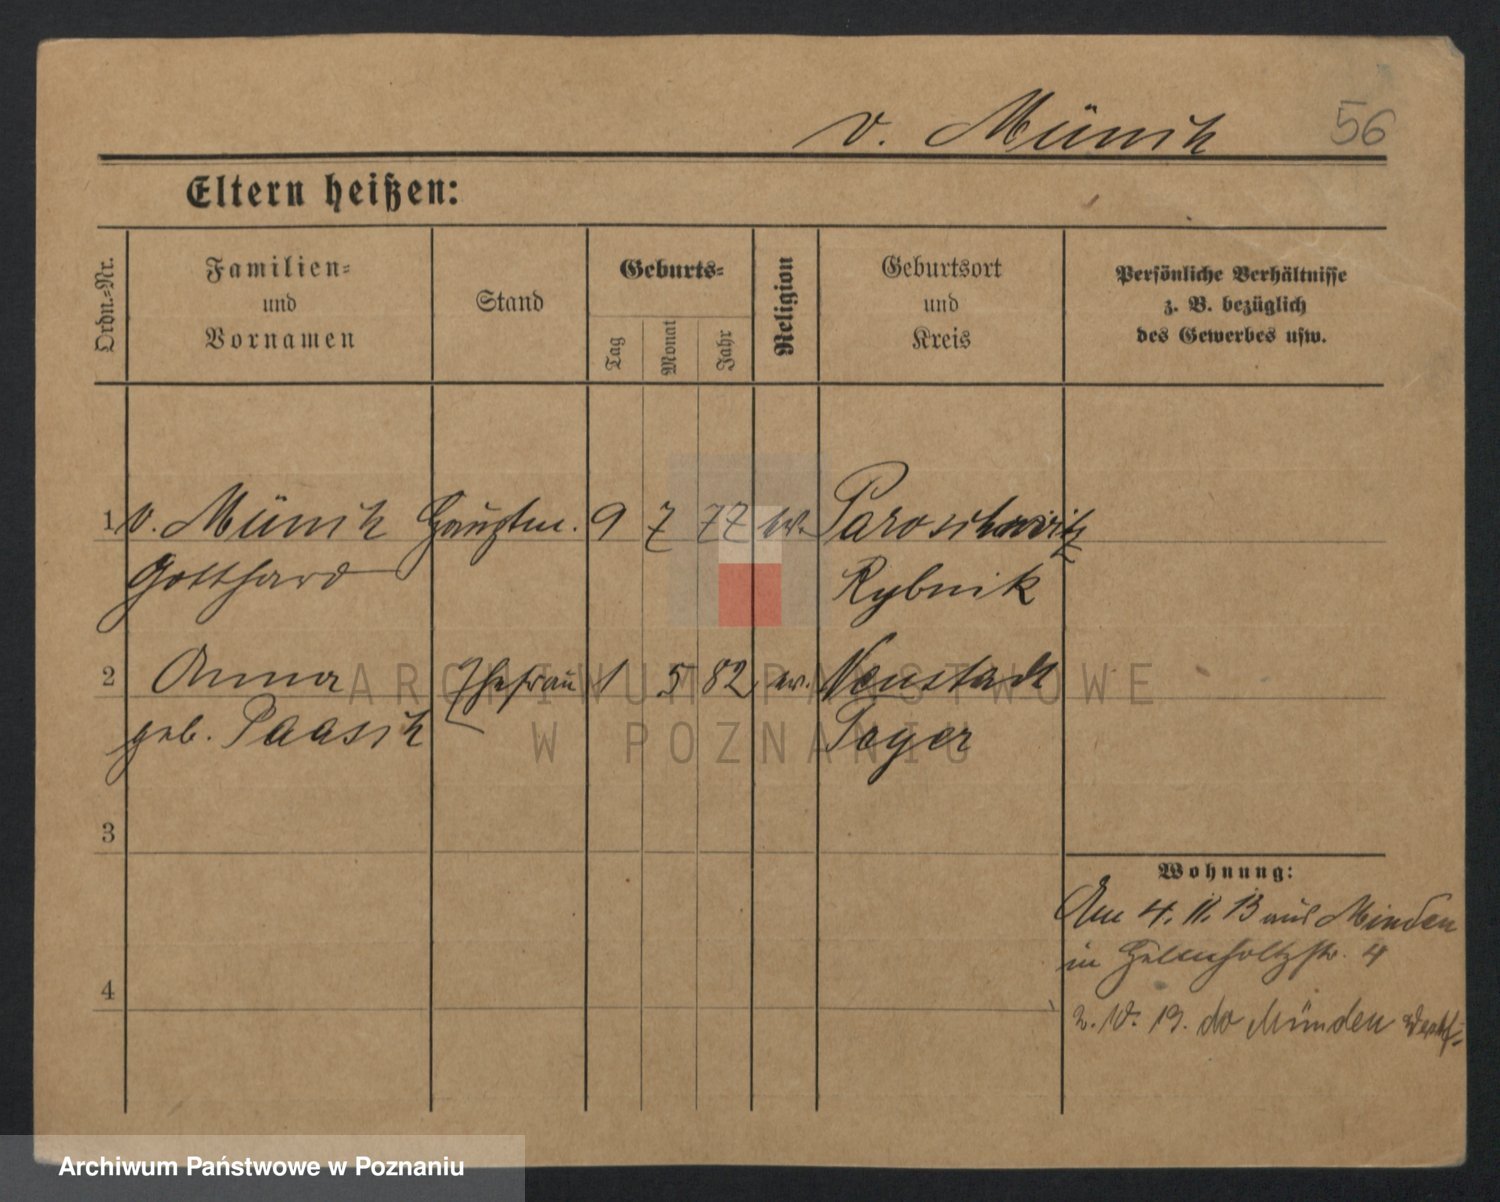 v. Münch 56
Eltern heißen:
Ordn.-Nr.
Familien-
und
Vornamen
Stand
Geburts-
Tag
Monat
Jahr
Religion
Geburtsort
und
Kreis
Persönliche Verhältnisse
z. B. bezüglich
des Gewerbes usw.
1 v. Münch Hauptm. 9 7 77 ev. Paroschowitz
Gotthard Rybnik
2 Anna Ehefrau 1 5 82 ev. Neustadt
geb. Paasch
3
Wohnung:
Am 4. 11. 13 aus Minden
in 4
4
2. IV. 19. do Minden Westf.
ARCHIWUM PAŃSTWOWE
W POZNANIU
Archiwum Państwowe w Poznaniu